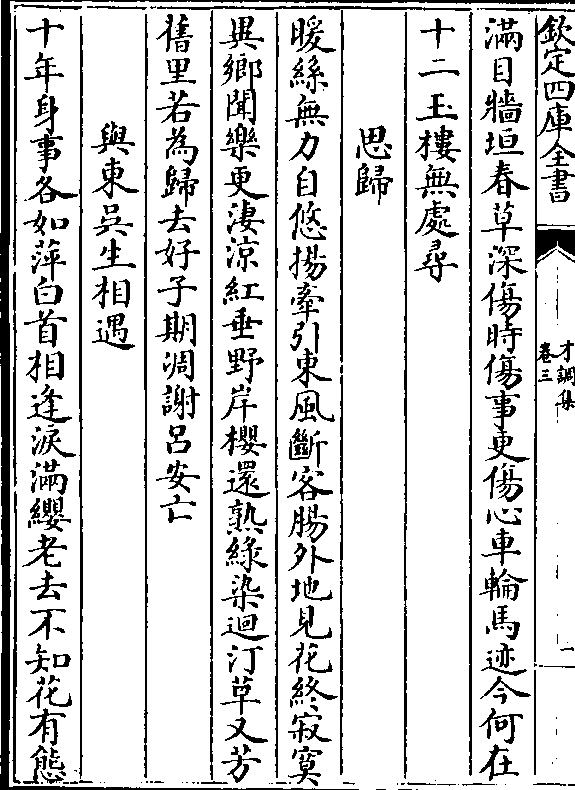 欽定四庫全書
才調集
卷三
一
滿目牆垣春草深傷時傷事更傷心車輪馬迹今何在
十二玉樓無處尋
思歸
暖絲無力自悠揚牽引東風斷客腸外地見花終寂寞
異鄉聞樂更淒涼紅垂野岸櫻還熟緑染迴汀草又芳
舊里若為歸去好子期凋謝呂安亡
與東吳生相遇
十年身事各如萍白首相逢淚滿纓老去不知花有態